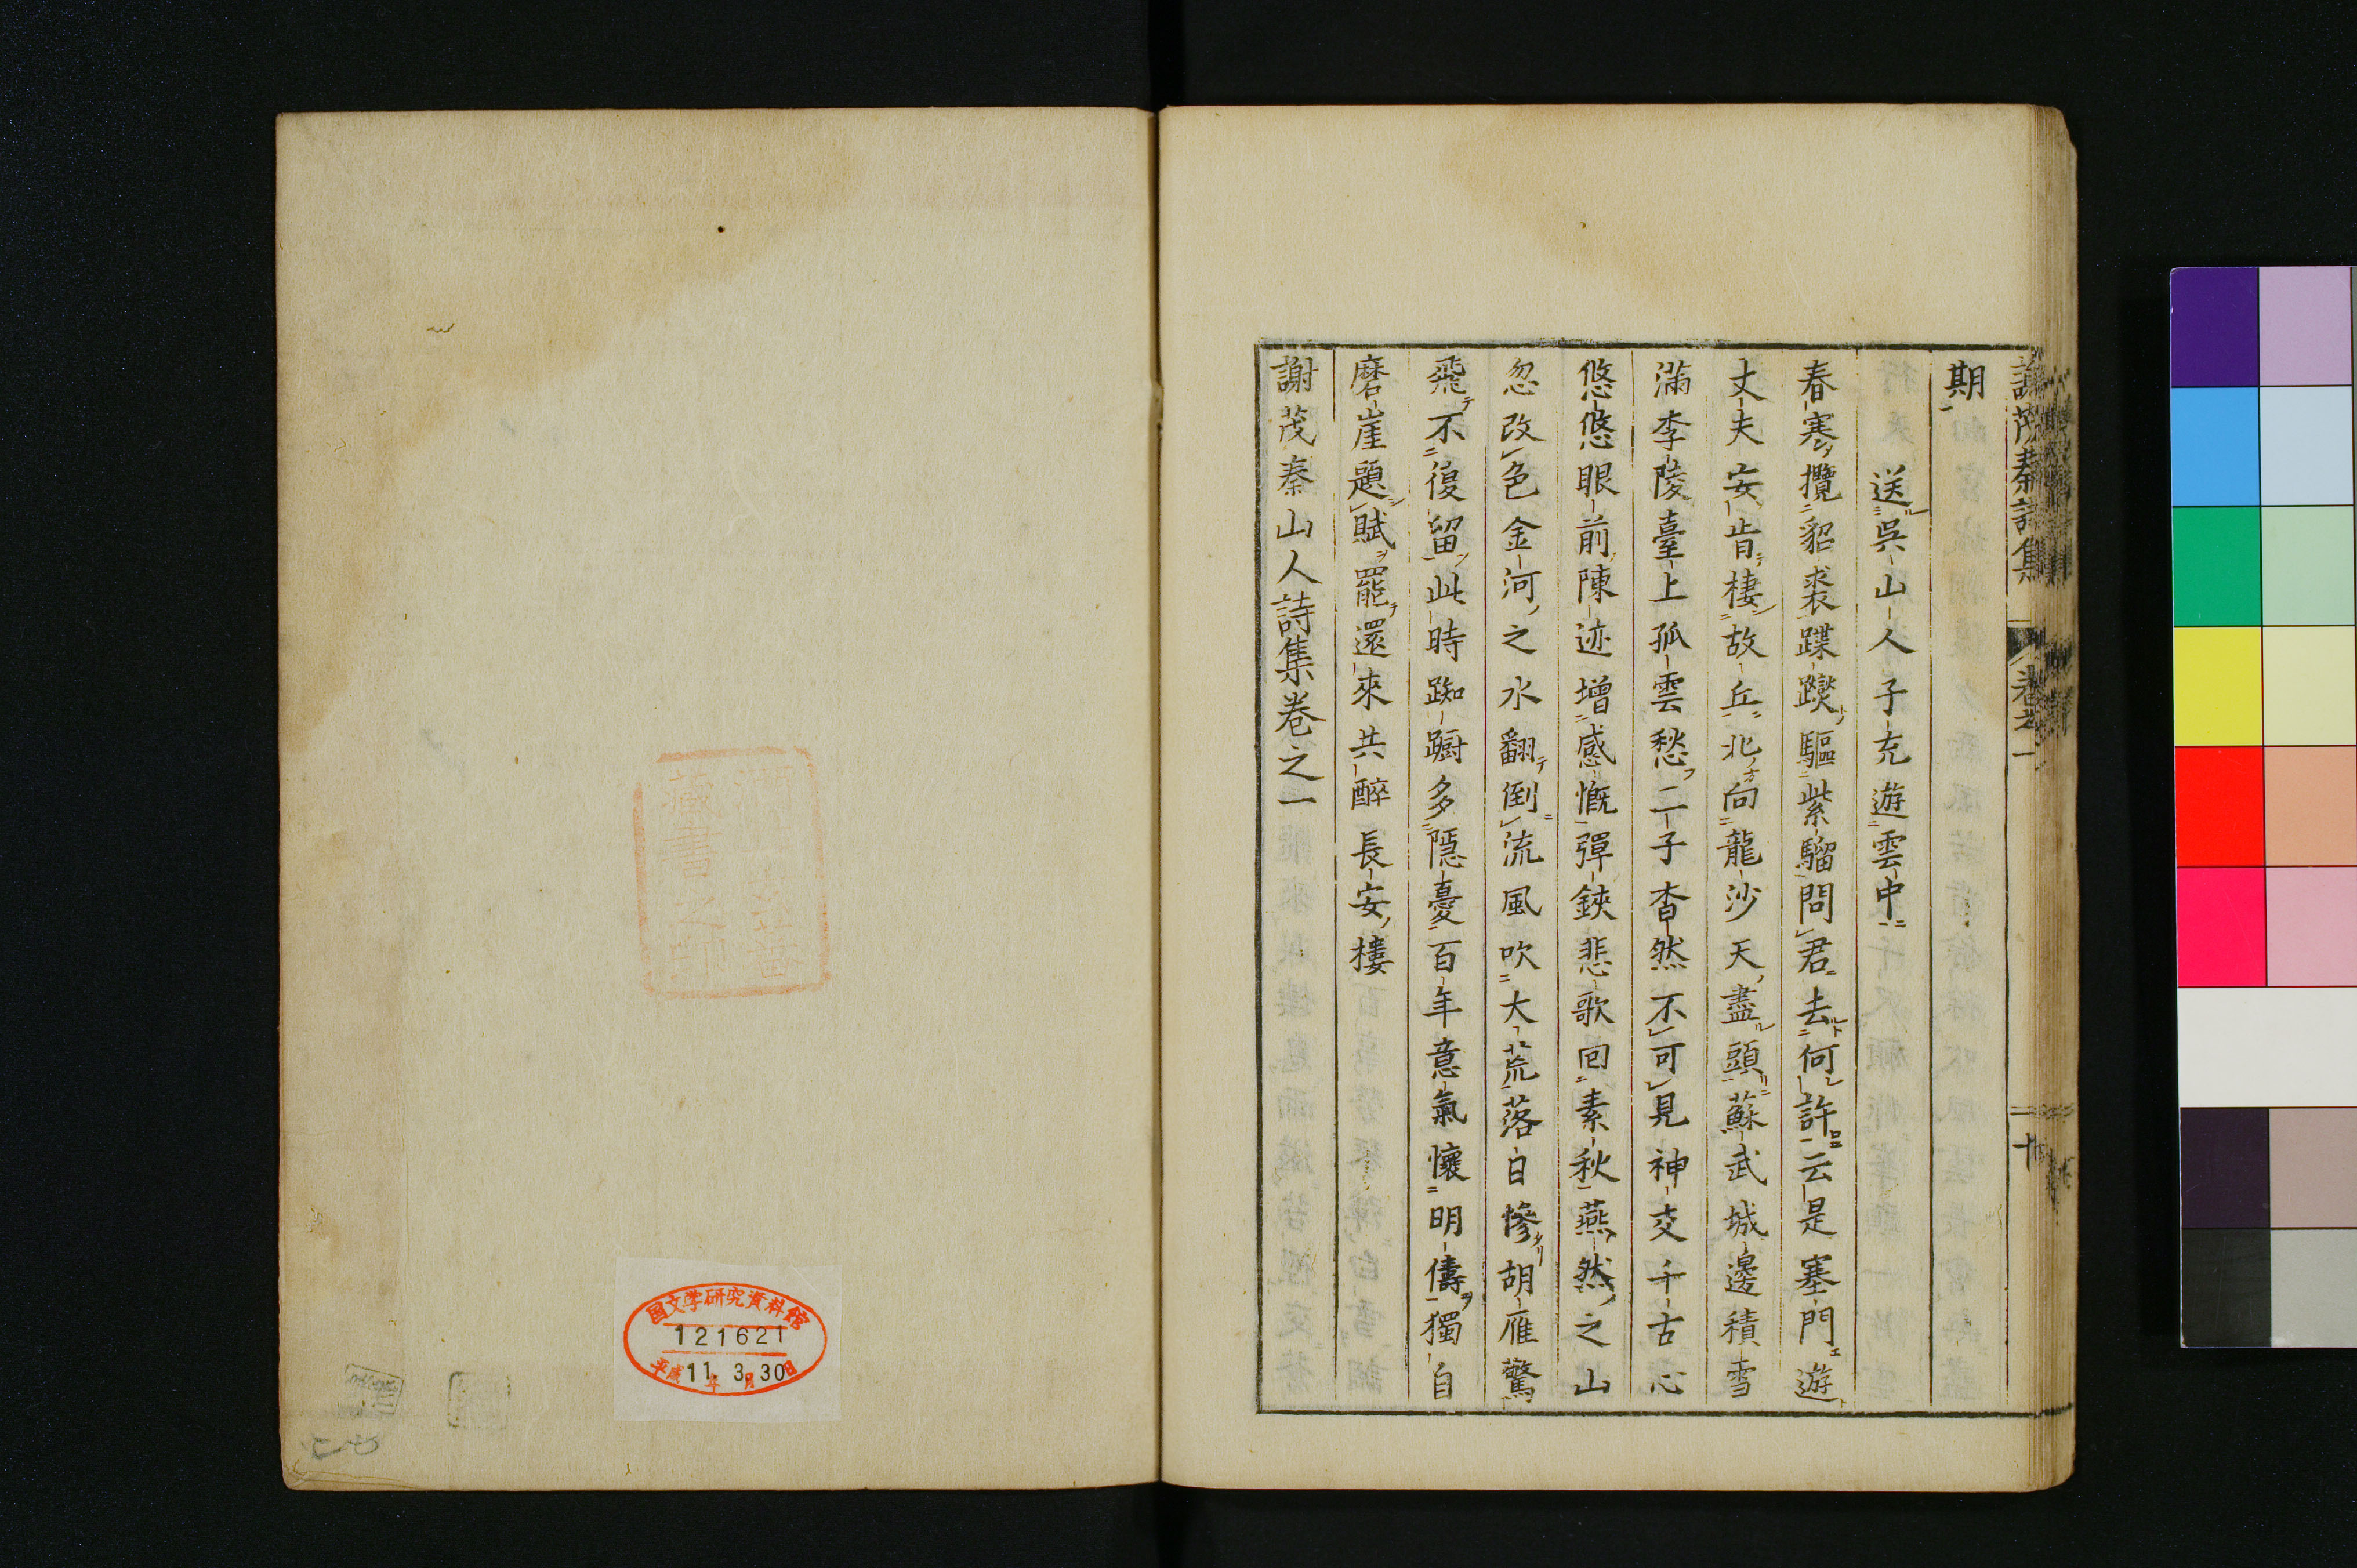 謝茂秦詩集 卷之一 十
期
送吳山人子充遊雲中
春寒攬貂裘蹀躞驅紫騮問君去何許云是塞門遊
丈夫安肯棲故丘北向龍沙天盡頭蘇武城邊積雪
滿李陵臺上孤雲愁二子杳然不可見神交千古心
悠悠眼前陳迹增感慨彈鋏悲歌回素秋燕然之山
忽改色金河之水翻倒流風吹大荒落日慘胡雁驚
飛不復留此時踟蹰多隱憂百年意氣懷明儔獨自
磨崖題賦罷還來共醉長安樓
謝茂秦山人詩集卷之一
藏書之印
国文学研究資料館
121621
平成11年3月30日